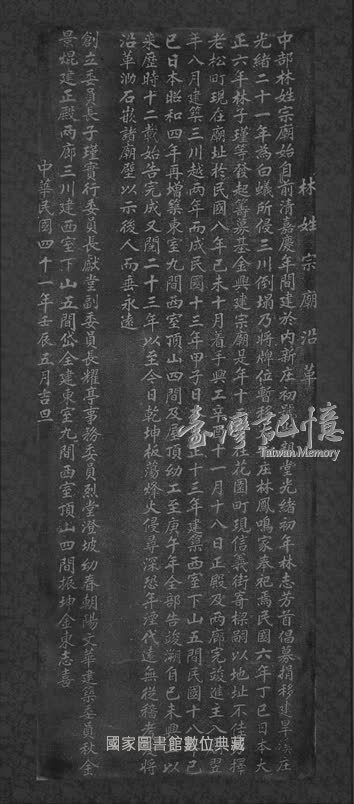 林姓宗廟沿革
中部林姓宗廟始自前清嘉慶年間建於內新庄初
堂光緒初年林志芳首倡募捐移建旱溪庄
光緒二十一年為白蟻所侵三川倒塌乃將牌位暫移
庄林鳳鳴家奉祀焉民國六年丁巳日本大
正六年林子瑾等發起籌募基金興建宗廟是年十
在花園町現信義街寄樑嗣以地址不佳
擇
老松町現在廟址於民國八年己未十月着手興工辛酉十一月十八日正殿及兩廊完竣進主入
翌
年八月建築三川越兩年而成民國十三年甲子日
大正十三年建築西室下山五間民國十八年己
巳日本昭和四年再增築東室九間西室頂山四間及
頂幼工至庚午年全部告竣溯自己未
以
來歷時十二載始告完成又閱二十三年以至今日乾坤板蕩烽火侵尋深恐年湮代遠無從稽考
將
沿革泐石嵌諸廟壁以示後人而垂永遠
創立委員長子瑾實行委員長獻堂副委員長耀亭事務委員烈堂澄坡幼春朝陽文華建築委員秋金
景焜建正殿兩廊三川建西室下山五間岱金建東室九間西室頂山四間振坤金東志喜
中華民國四十一年壬辰五月吉旦
臺灣記憶
Taiwan Memory
國家圖書館數位典藏